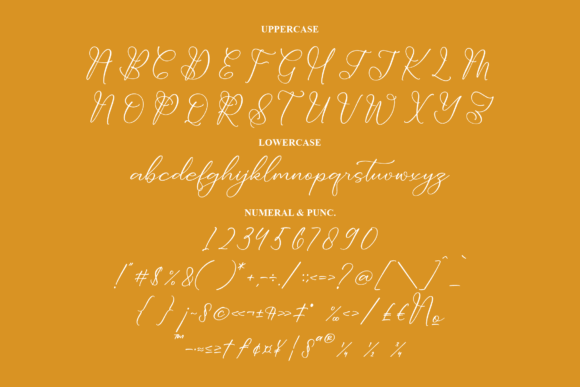 UPPERCASE
A B C D E F G H I J K L M
N O P Q R S T U V W X Y Z
LOWERCASE
abcdefghijklmnopqrstuvwxyz
NUMERAL & PUNC.
1 2 3 4 5 6 7 8 9 0
! " # $ % & ( ) * + , - ÷ . / : ; < = > ? @ [ \ ] ^ ` _
{ } ¡ ~ § © « « ¬ ± ® » ‡ ° ‰ < > / £ € №
™ " - = ≤ ≥ † ƒ ¢ ¤ ¥ | § ª ® ¼ ½ ¾